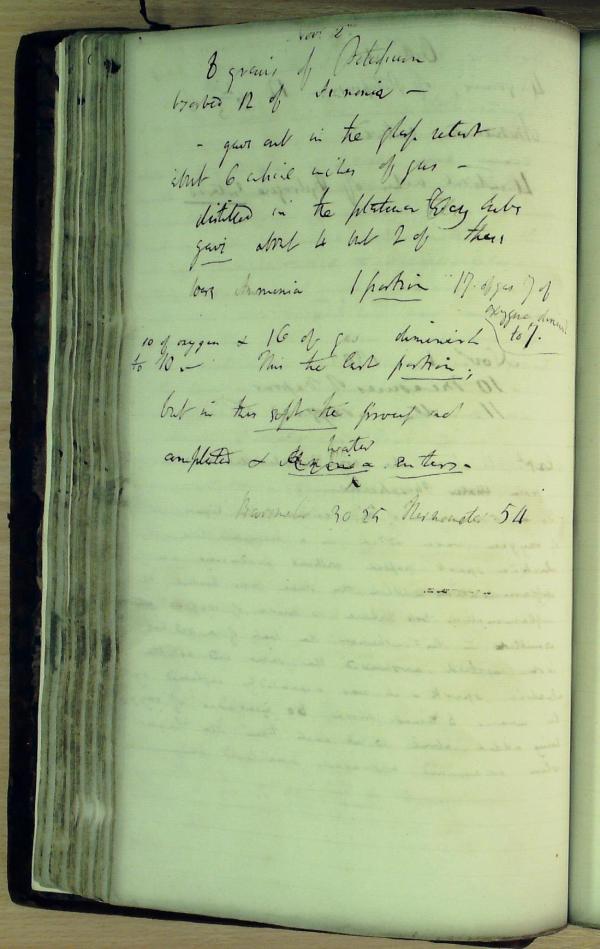 Nov. 2nd
8 grains of Potassium
absorbed 12 of Ammonia —
- gave out in the glass retort
about 6 cubical inches of gas —
distilled in the platina tube
gave about 4 but 2 of these
were Ammonia 1 portion 17 of gas 7 of
oxygene, diminish
to 7.
10 of oxygen & 16 of gas diminish
to 10 — This the last portion;
but in this the process not
completed & water enters.
Barometer 30 25 Thermometer 54